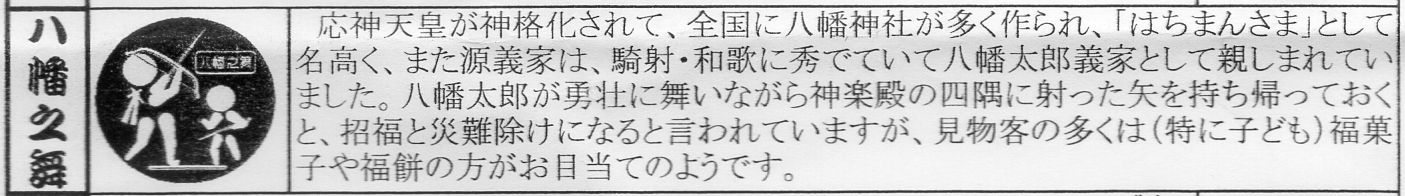 八幡之舞
八幡之舞
応神天皇が神格化されて、全国に八幡神社が多く作られ、「はちまんさま」として
名高く、また源義家は、騎射・和歌に秀でていて八幡太郎義家として親しまれてい
ました。八幡太郎が勇壮に舞いながら神楽殿の四隅に射った矢を持ち帰っておく
と、招福と災難除けになると言われていますが、見物客の多くは(特に子ども)福菓
子や福餅の方がお目当てのようです。